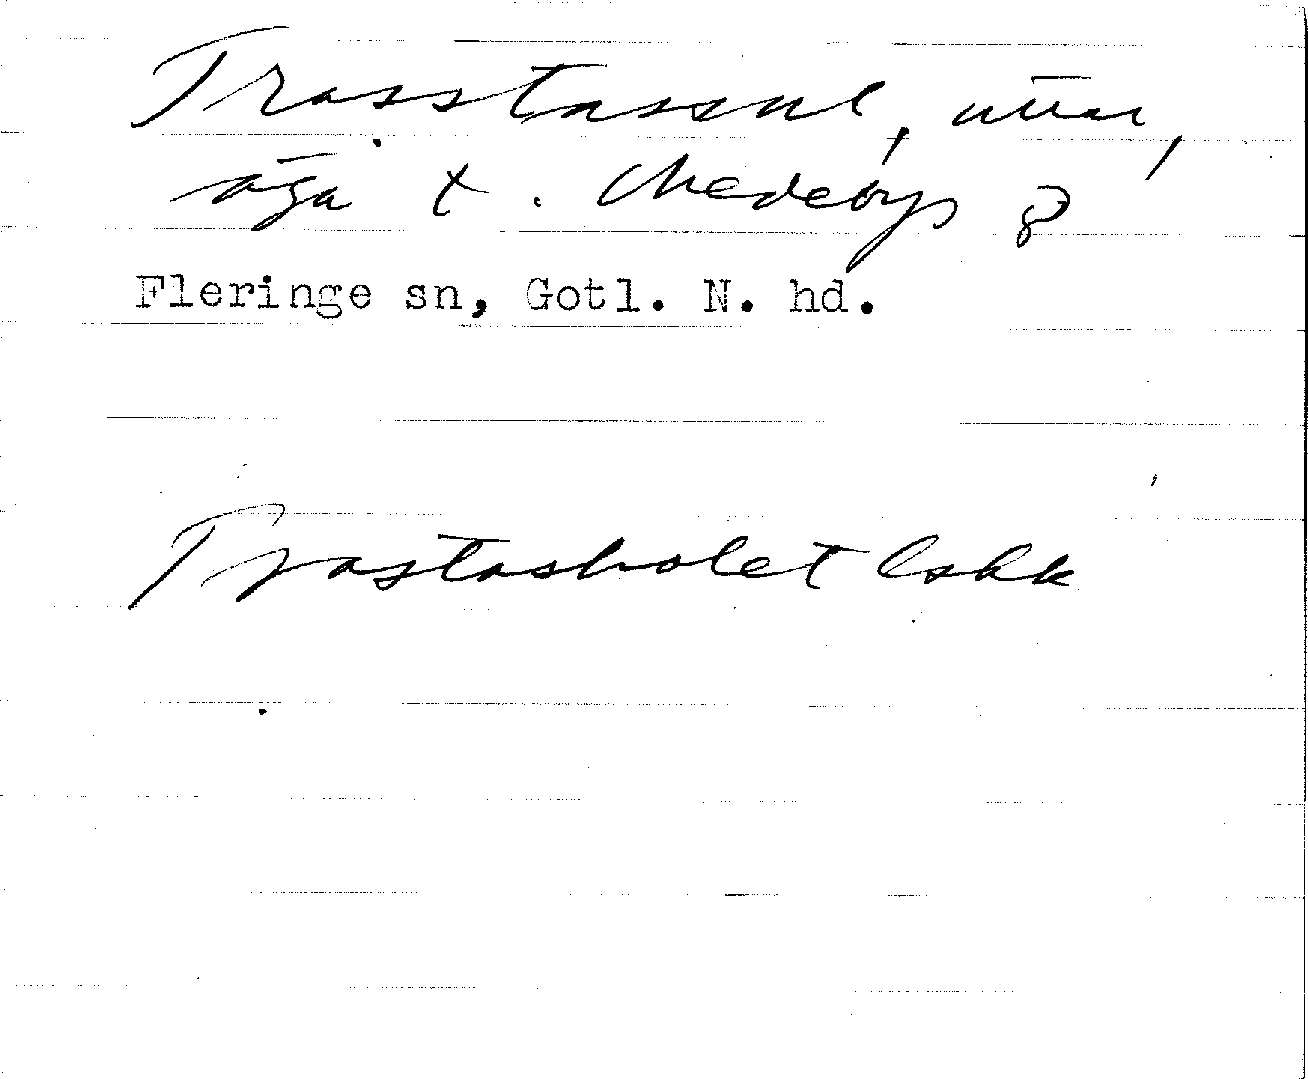 Trasstassul, uttar,
ägä t. Medebys 8
Fleringe sn, Gotl. N. hd.
Trastasholet lokk